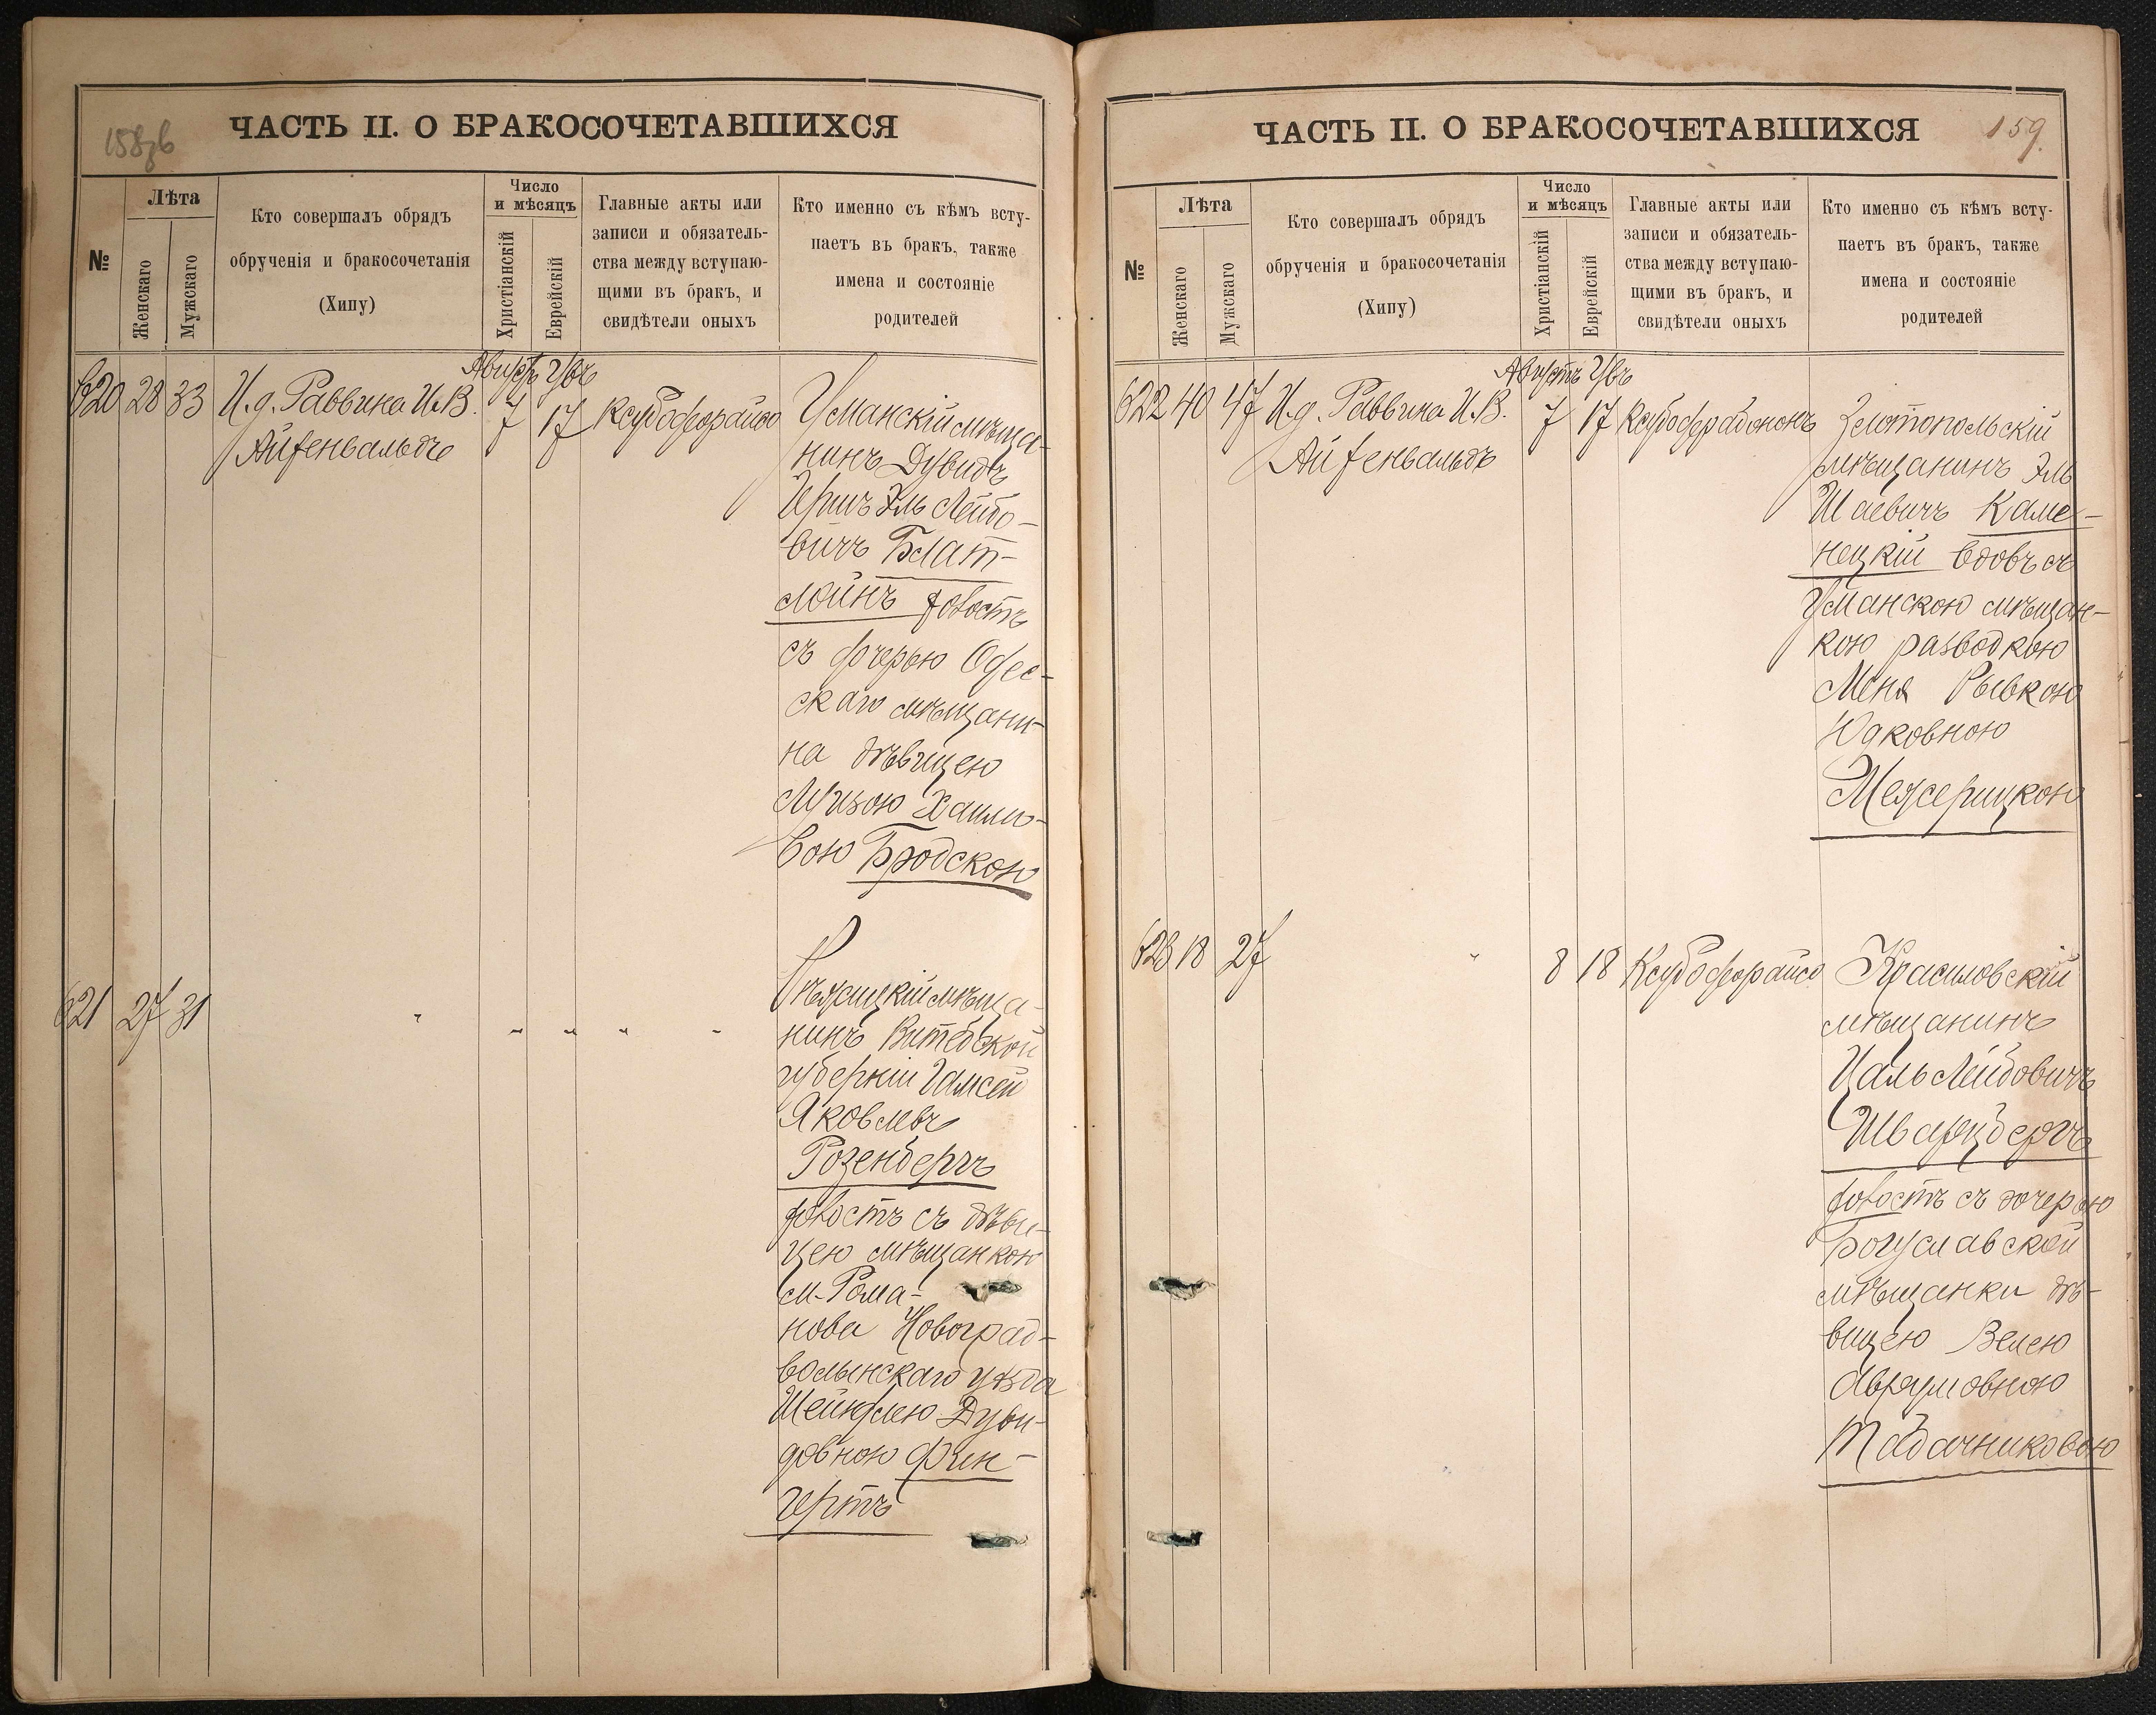 158об
ЧАСТЬ II. О БРАКОСОЧЕТАВШИХСЯ
№
Лѣта
Женскаго
Мужскаго
Кто совершалъ обрядъ
обрученія и бракосочетанія
(Хипу)
Число
и мѣсяцъ
Христіанскій
Еврейскій
Главные акты или
записи и обязатель-
ства между вступаю-
щими въ бракъ, и
свидѣтели оныхъ
Кто именно съ кѣмъ всту-
паетъ въ бракъ, также
имена и состояніе
родителей
620 28 33 И.д. Раввина И.В.
Айзенвальдъ
Августъ
7 17
Уманскій мѣща-
нинъ Дувидъ
Гершъ Эль Лейбо-
вичъ Блат-
холостъ
съ дочерью Одес-
скаго мѣщани-
на дѣвицею
вою Бродскою
621 27 31 " " " " "
мѣща-
нинъ Витебской
губерніи
Яковлевъ
Розенбергъ
холостъ съ дѣви-
цею мѣщанкою
м. Рома-
нова Новоград-
волынскаго уѣзда
Шейндлею Дуви-
довною Фин-
гертъ
159.
ЧАСТЬ II. О БРАКОСОЧЕТАВШИХСЯ
№
Лѣта
Женскаго
Мужскаго
Кто совершалъ обрядъ
обрученія и бракосочетанія
(Хипу)
Число
и мѣсяцъ
Христіанскій
Еврейскій
Главные акты или
записи и обязатель-
ства между вступаю-
щими въ бракъ, и
свидѣтели оныхъ
Кто именно съ кѣмъ всту-
паетъ въ бракъ, также
имена и состояніе
родителей
622 40 47 И.д. Раввина И.В.
Айзенвальдъ
Августъ
7 17
Златопольскій
мѣщанинъ Эль
Шаевичъ Каме-
нецкій вдовъ съ
Уманскою мѣщан-
кою разводкою
Меня Рывкою
Юдковною
Межерицкою
623 18 27 " 8 18
Красиловскій
мѣщанинъ
Цаль Лейбовичъ
Шварцбергъ
холостъ съ дочерью
Богуславской
мѣщанки дѣ-
вицею Велею
Аврумовною
Табачниковою